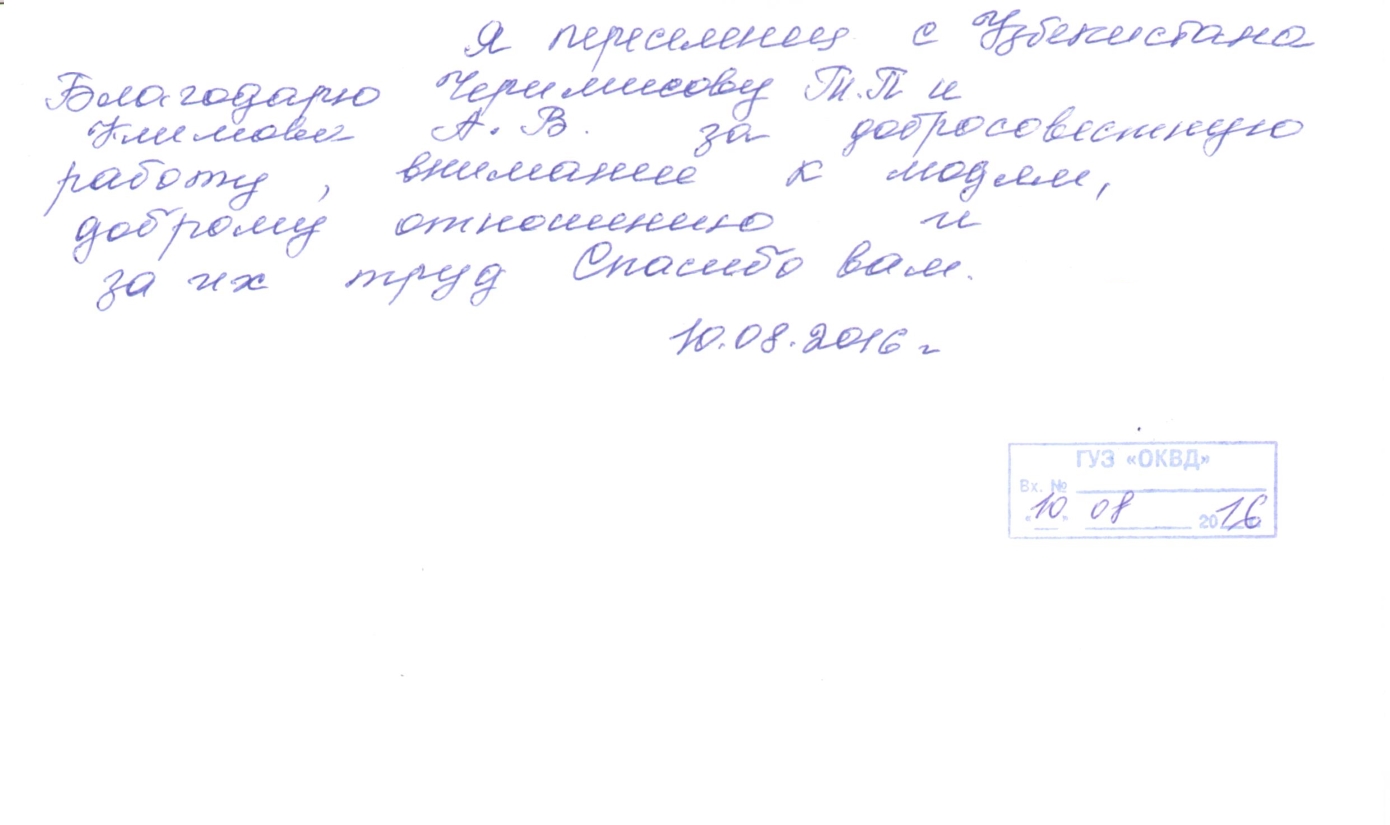 Я переселенец с Узбекистана
Благодарю Черимисову Т.П и
Климова А. В. за добросовестную
работу, внимание к людям,
доброму отношению и
за их труд Спасибо вам.
10.08.2016 г
ГУЗ «ОКВД»
Вх. №
«10» 08 2016